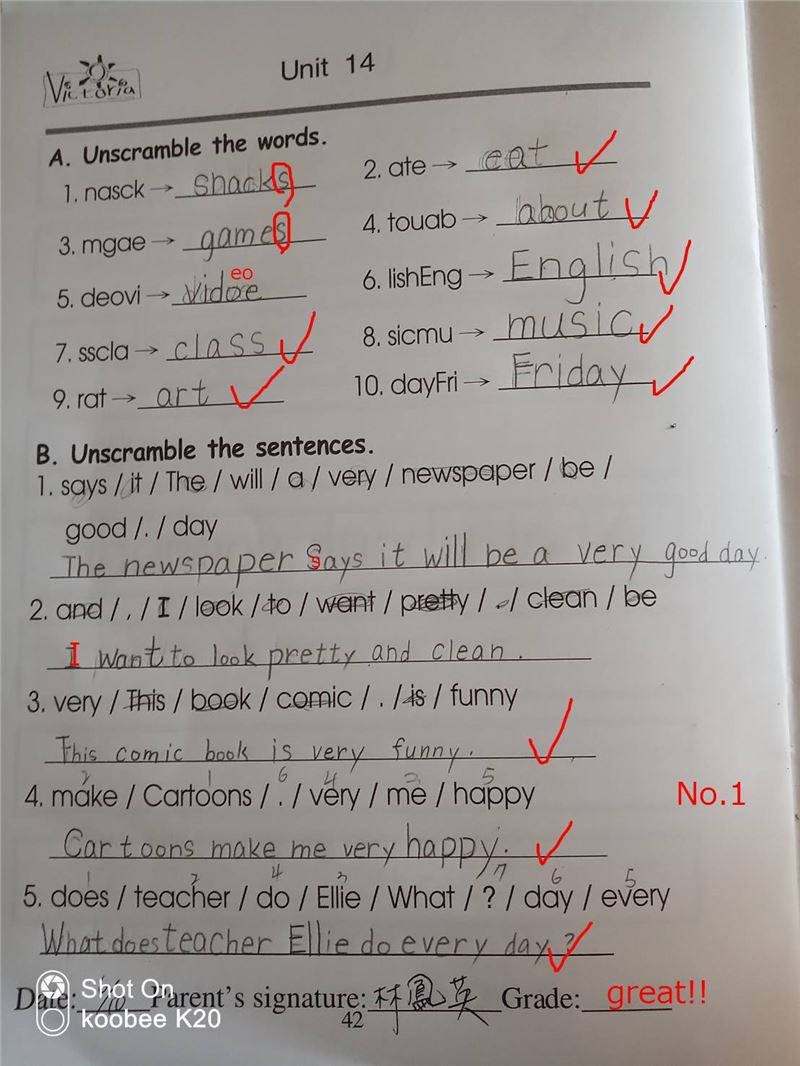 Victoria
Unit 14
A. Unscramble the words.
1. nasck → snacks
2. ate → eat
3. mgae → games
4. touab → about
5. deovi → Vidoe eo
6. lishEng → English
7. sscla → class
8. sicmu → music
9. rat → art
10. dayFri → Friday
B. Unscramble the sentences.
1. says / it / The / will / a / very / newspaper / be /
good / . / day
The newspaper says it will be a very good day.
2. and / , / I / look / to / want / pretty / . / clean / be
I want to look pretty and clean.
3. very / This / book / comic / . / is / funny
This comic book is very funny.
2 1 6 4 3 5
4. make / Cartoons / . / very / me / happy
No.1
Cartoons make me very happy.
1 2 4 3 7 6 5
5. does / teacher / do / Ellie / What / ? / day / every
What does teacher Ellie do every day?
Date: Parent's signature: 林鳳英 Grade: great!!
Shot On
koobee K20
42